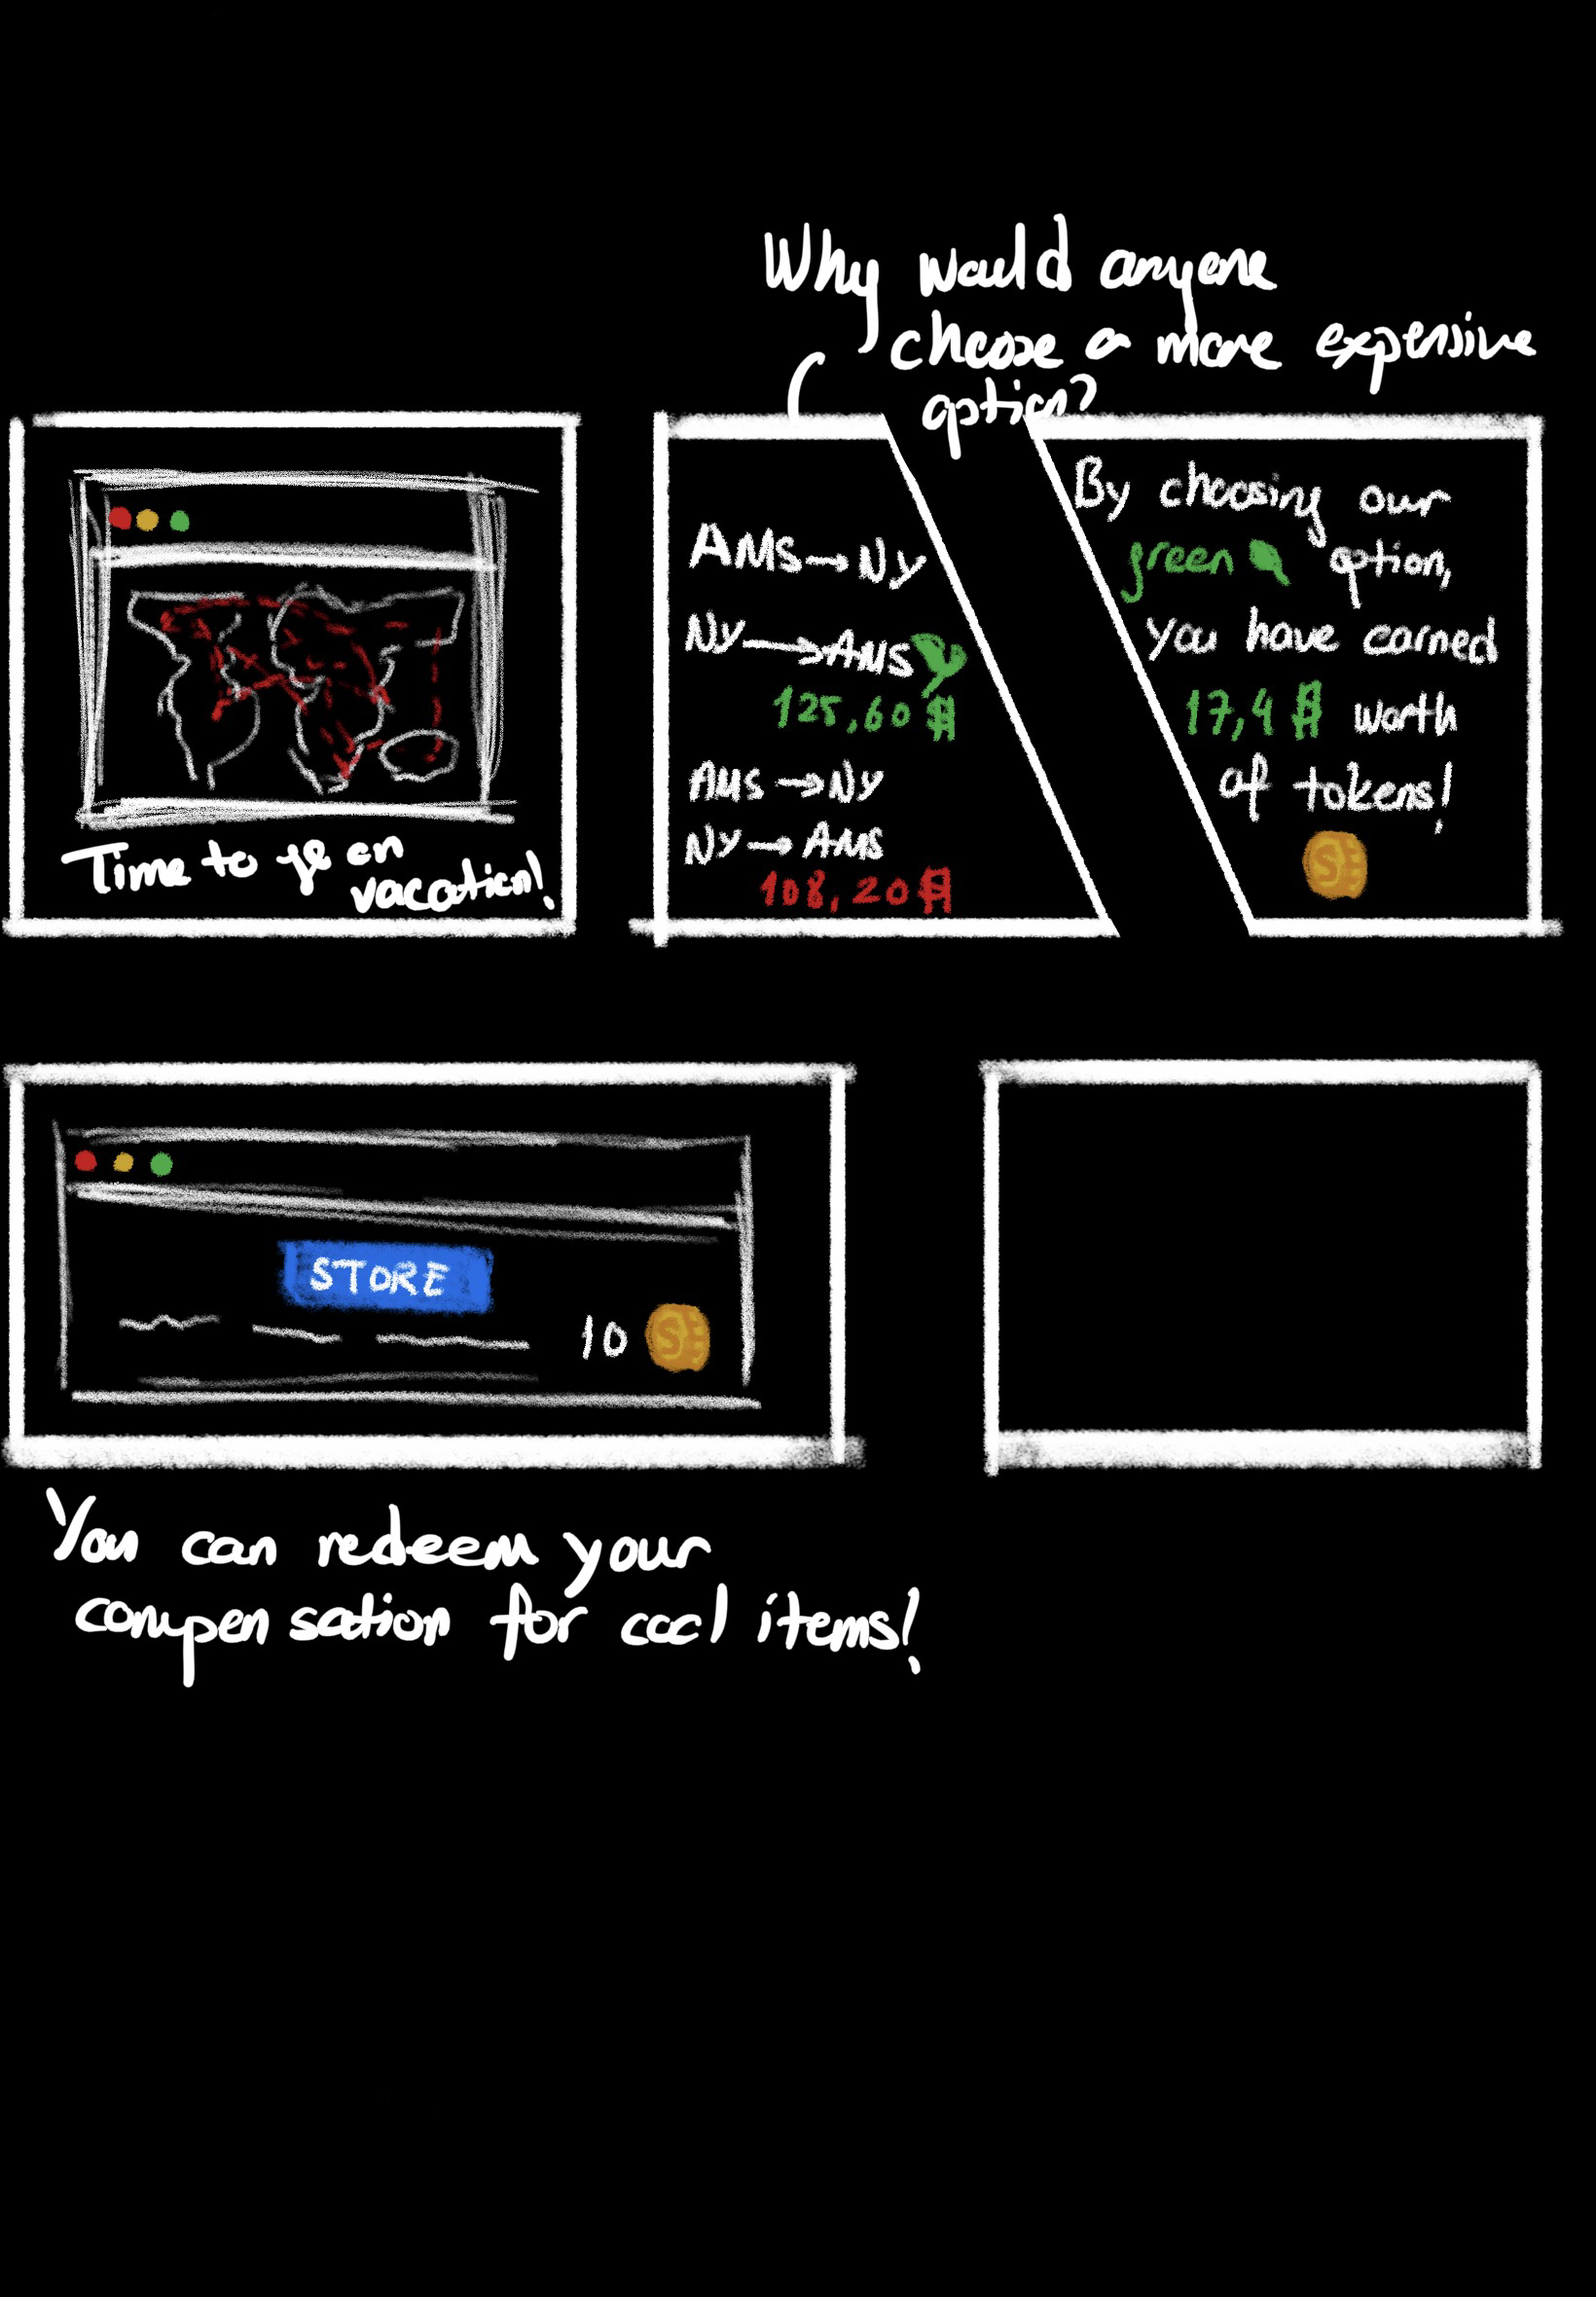 Why would anyone
choose a more expensive
option?
Time to go on
vacation!
AMS→NY
NY→AMS
125,60 $
AMS→NY
NY→AMS
108,20 $
By choosing our
green option,
you have earned
17,4 $ worth
of tokens!
S
STORE
10 S
You can redeem your
compensation for cool items!